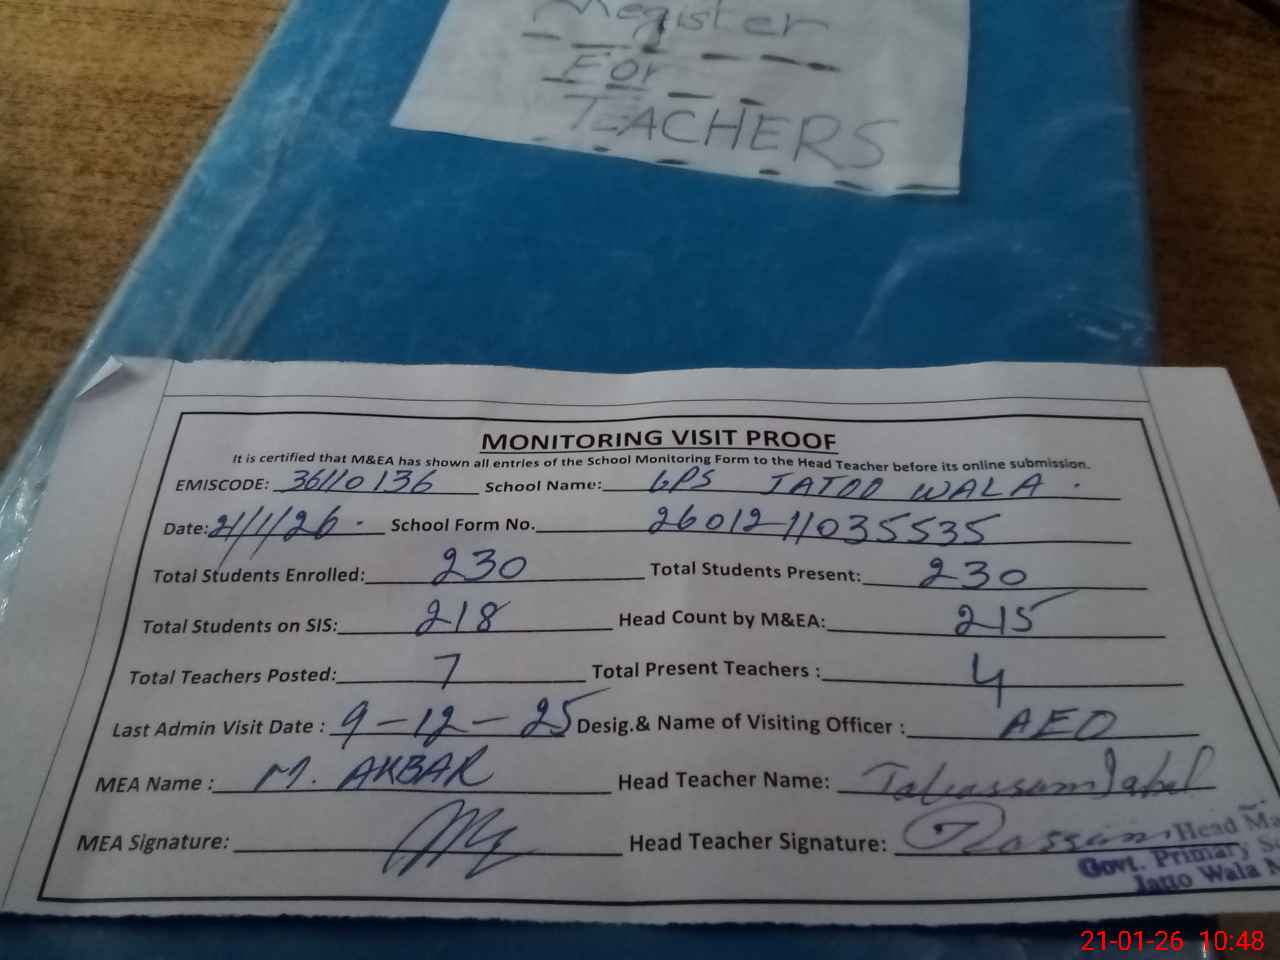 Register
For
TEACHERS
MONITORING VISIT PROOF
It is certified that M&EA has shown all entries of the School Monitoring Form to the Head Teacher before its online submission.
EMISCODE: 36110136 School Name: GPS JATOO WALA.
Date: 21/1/26. School Form No. 2601211035535
Total Students Enrolled: 230 Total Students Present: 230
Total Students on SIS: 218 Head Count by M&EA: 215
Total Teachers Posted: 7 Total Present Teachers : 4
Last Admin Visit Date : 9-12-25 Desig.& Name of Visiting Officer : AEO
MEA Name : M. AKBAR Head Teacher Name: Tabassum
MEA Signature: Head Teacher Signature:
Head
Govt. Primary
Jatto Wala
21-01-26 10:48